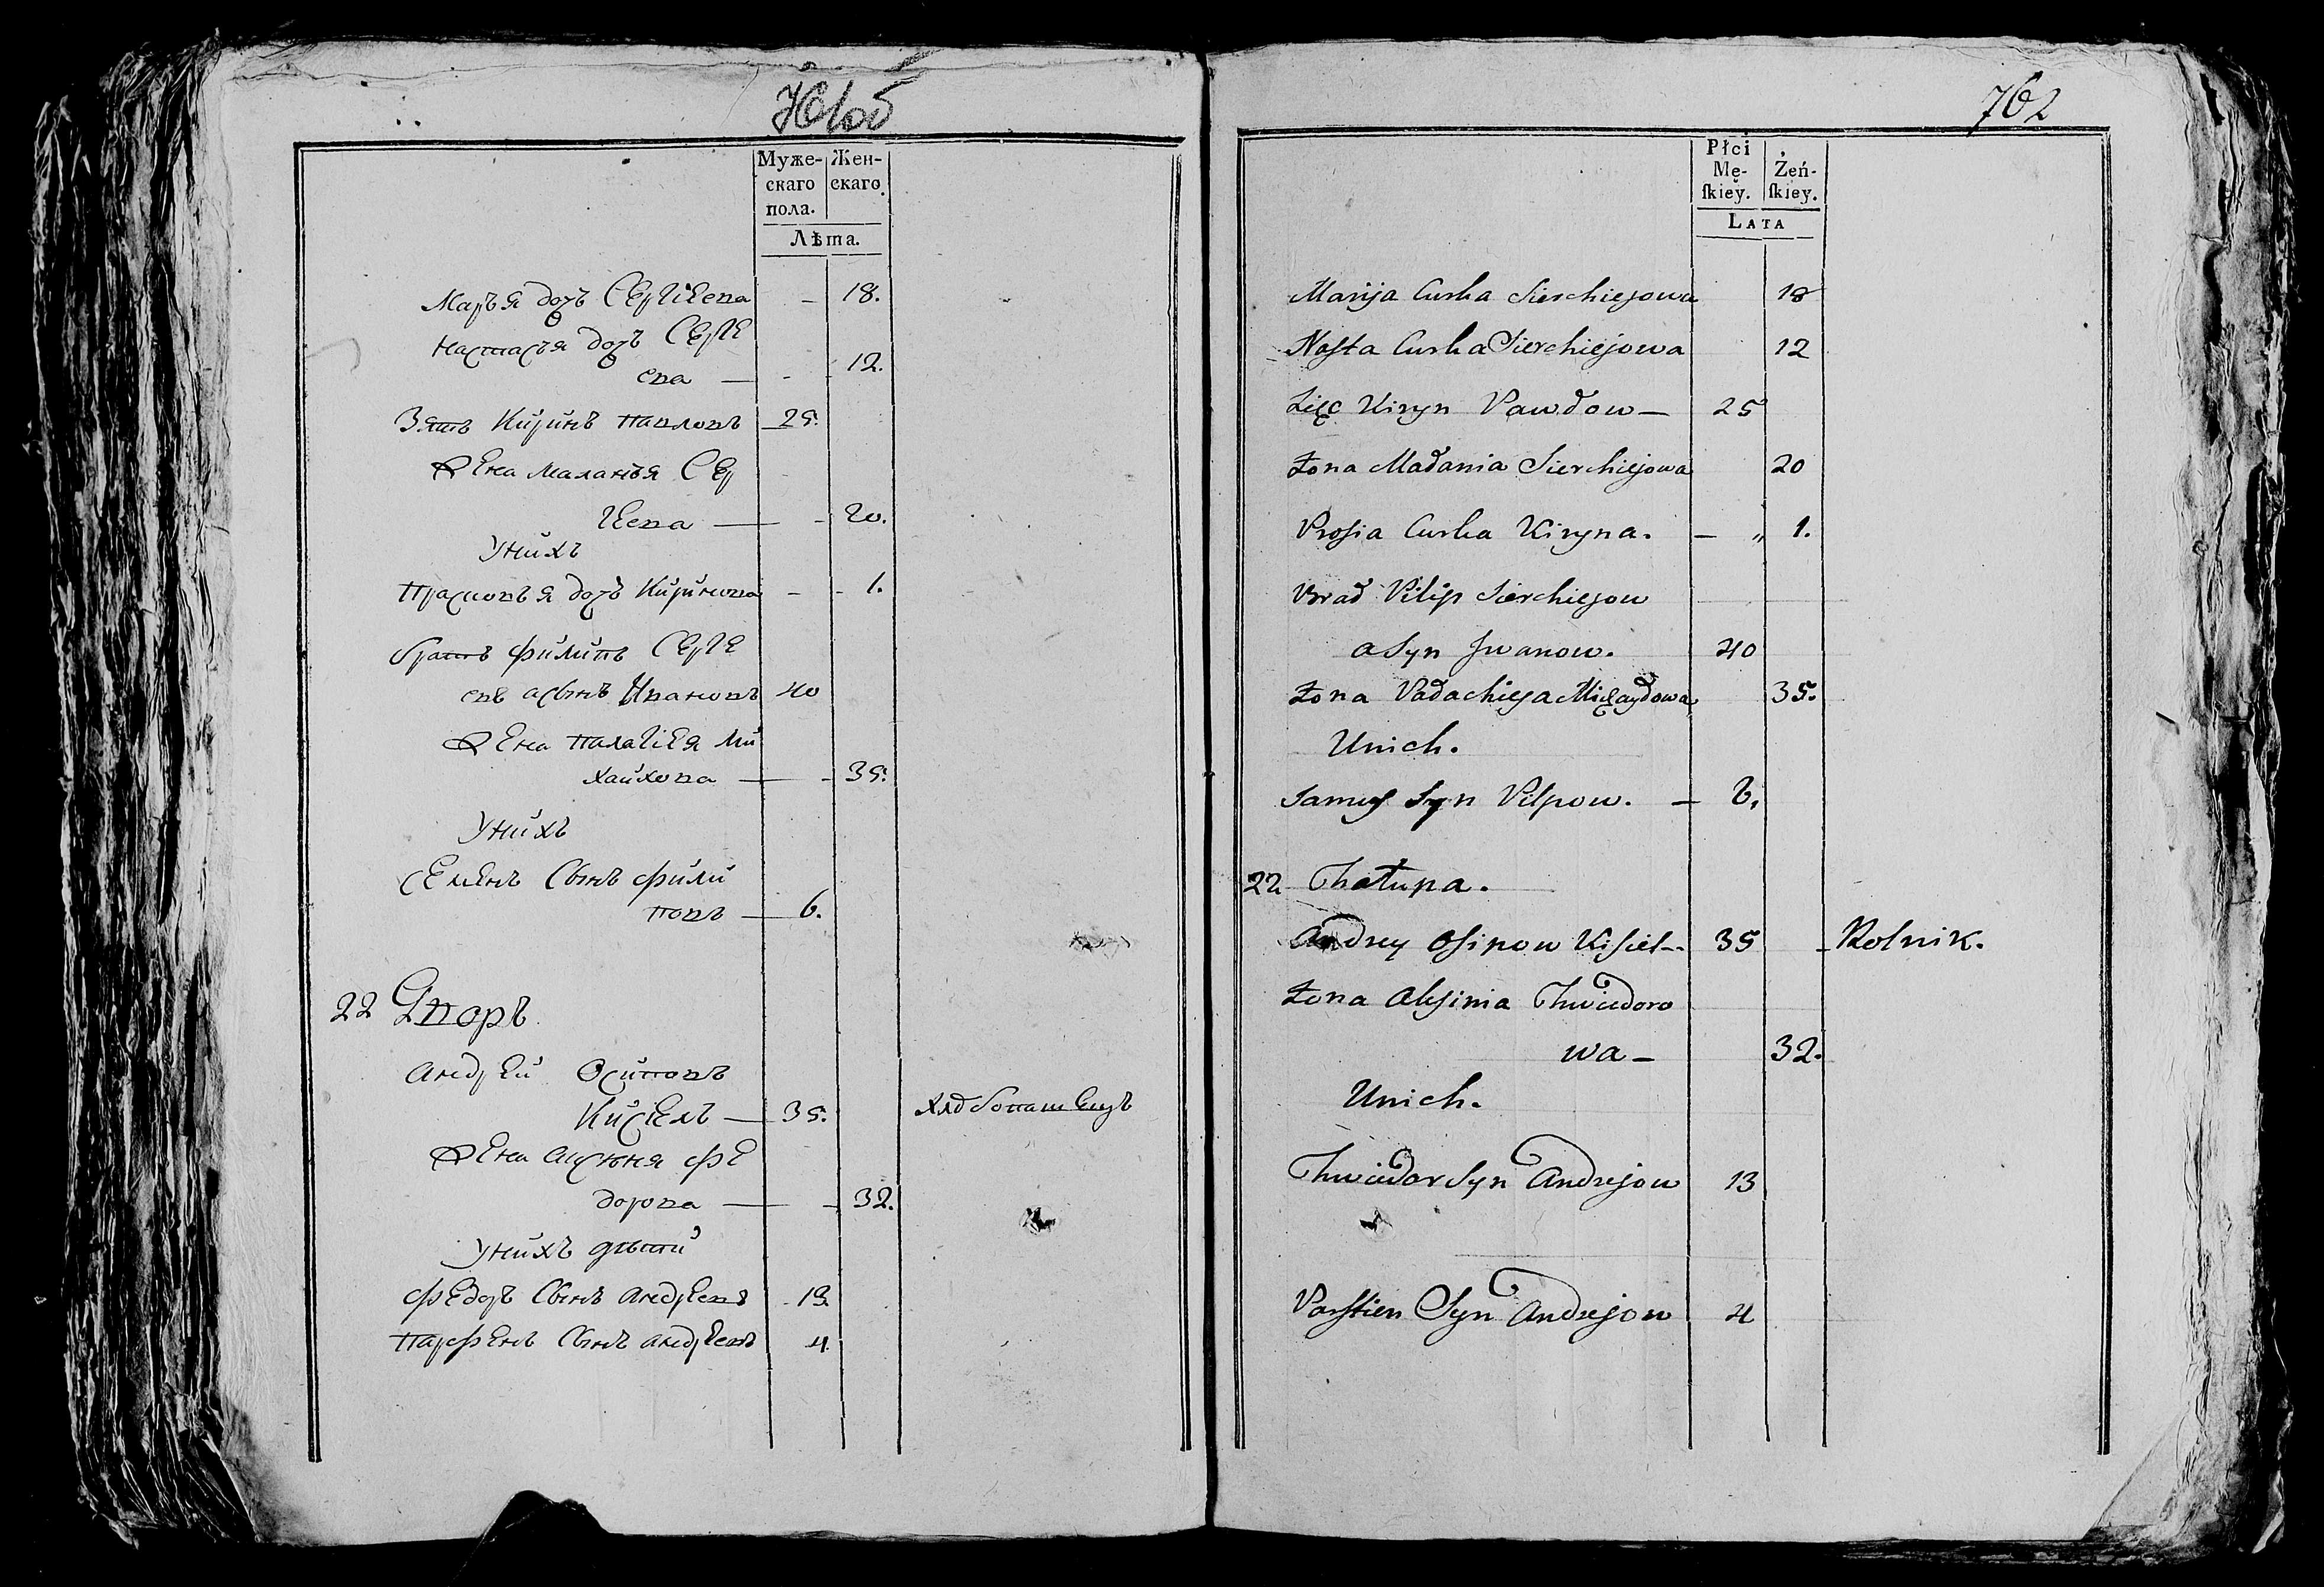 Муже-
скаго
пола.
Жен-
скаго.
Лѣта.
Марья дочь Сергѣева — 18.
Настасья дочь Серге
ева — 12.
Зять Киринъ Павловъ 25.
Жена Маланья Сер
геева — 20.
У нихъ
Прасковья дочь Киринова - 1.
братъ Филипъ Серге
евъ а сынъ Ивановъ 40
Жена Палагѣея Ми
хайлова — 35.
У нихъ
Семенъ Сынъ Фили
повъ — 6.
22 Дворъ
Андрей Осиповъ
Киселъ — 35. Хлѣбопашецъ
Жена Аксинья Фе
дорова — 32.
У нихъ дѣти
Федоръ Сынъ Андреевъ 13
Парфенъ Сынъ Андреевъ 4.
762
Płci
Mę-
ſkiey.
Żeń-
ſkiey.
LATA
Marija Curka Sierchiejowa 18
Nasta Curka Sierchiejowa 12
Zięc Kiryn Pawłow — 25
Żona Małania Sierchiejowa 20
Prosia Curka Kiryna. — „ 1.
Brad Pilip Sierchiejow
a Syn Jwanow. 40
Żona Pałachieja Michayłowa 35.
Unich.
Syn Pilpow. — 6.
22 Chałupa.
Andrey Osipow Kisiel — 35 — Rolnik.
Żona Aksinia Chwiedoro
wa — 32.
Unich.
Chwiedor Syn Andrejow 13
Parftien Syn Andrejow 4